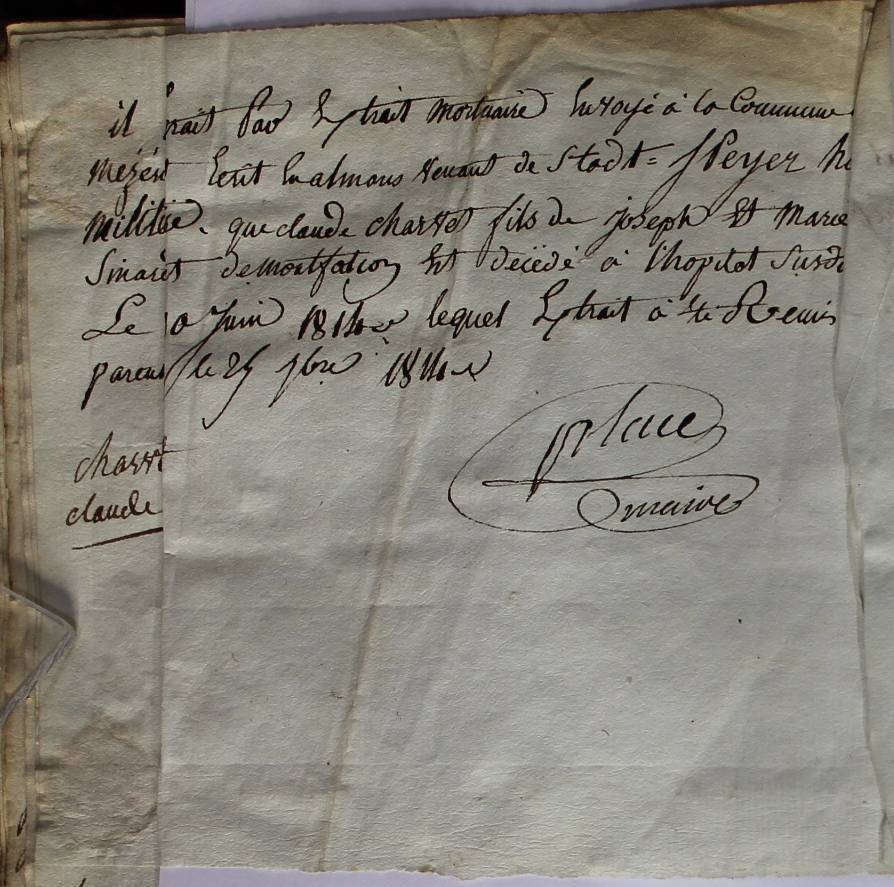 il rait Par Extrait mortuaire Envoyé a la Commune
mezéri Ecrit En almans venant de Stadt = Speyer
militie. que claude charvet fils de joseph Et marie
Sinaret demontfalcon Est decédé a l'hopital Susd
Le 10 Juin 1814 lequel Extrait a êté Remis
parens le 25 9bre 1814
place
maire
charvet
claude